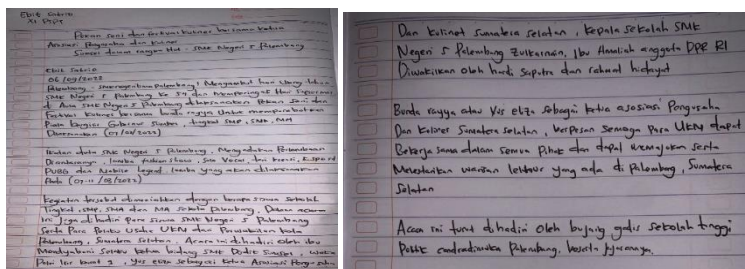 Ebit Satrio
XI
Pekan seni dan festival kuliner bersama ketua
Asosiasi Pengusaha dan kuliner
Sumsel dalam rangka Hut SMK Negeri 5 Palembang
Ebit Satrio
06/09/2022
Palembang - Palembang, hari ulang tahun
SMK Negeri 5 Palembang ke 59 dan hari
di Aula SMK Negeri 5 Palembang dilaksanakan Pekan seni dan
Festival kuliner bersama bunda rayya untuk memperebutkan
Piala bergilir Gubernur tingkat SMP, SMK, MA
SMK Negeri 5 Palembang, Mengadakan
lomba fashion show, Solo Vocal, tari kreasi, E.sport
PUBG dan Mobile Legend, lomba yang akan dilaksanakan
Pada (07-11/09/2022)
Kegiatan tersebut dimeriahkan dengan berapa siswa sekolah
Tingkat SMP, SMA dan MA kota Palembang, Dalam acara
Ini juga dihadiri Para siswa SMK Negeri 5 Palembang
Serta Para Pelaku usaha UKM dan Perwakilan kota
Palembang, Sumatera Selatan, Acara ini dihadiri oleh ibu
selaku ketua bidang SMK Dodit
Yus eliza sebagai ketua Asosiasi
Dan Kuliner Sumatera selatan, kepala sekolah SMK
Negeri 5 Palembang Zulkarnain, Ibu anggota DPR RI
Diwakilkan oleh hardi saputra dan rahmat hidayat
Bunda rayya atau Yus eliza sebagai ketua asosiasi Pengusaha
Dan Kuliner Sumatera selatan, berpesan Semoga Para UKM dapat
Bekerja sama dalam semua Pihak dan dapat memajukan serta
warisan leluhur yang ada di Palembang, Sumatera
Selatan
Acara ini turut dihadiri oleh bujang gadis sekolah tinggi
Palembang, beserta